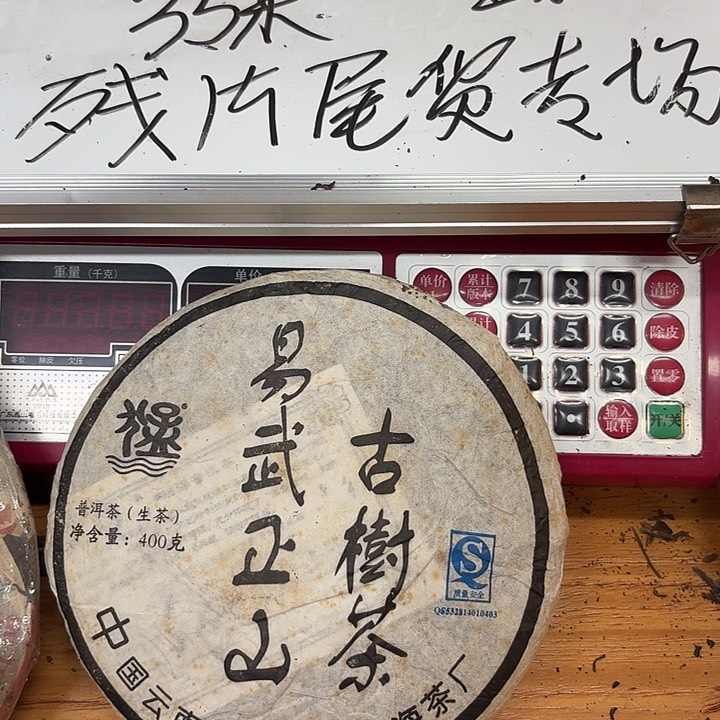 残片尾货专场
重量（千克）
单价
零位 除皮 欠压
单价
累计
版本
7 8 9
清除
累计
4 5 6
除皮
1 2 3
置零
输入
取样
开/关
易武正山
古樹茶
普洱茶（生茶）
净含量：400克
S
质量安全
QS532814010403
中国云南
海茶厂